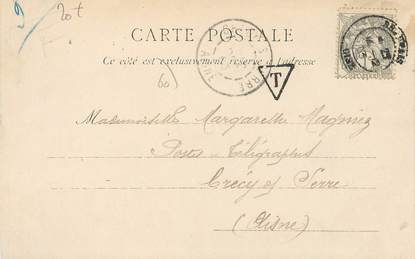 20t
CARTE POSTALE
Ce côté est exclusivement réservé à l'adresse
60
T
Mademoiselle Margarette Magniez
Postes et Télégraphes
Crécy s/ Serre
(Aisne)